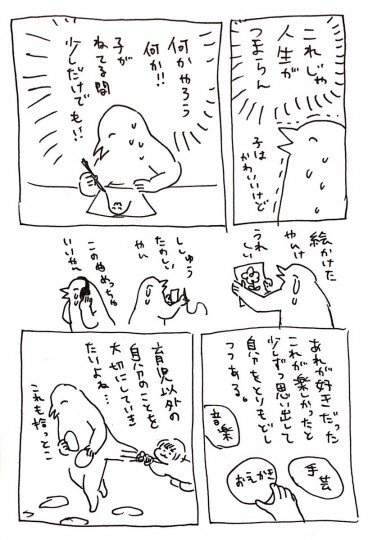 これじゃ
人生が
つまらん
子は
かわいいけど
何かやろう
何か!!
子が
ねてる間
少しだけでも!!
絵かけた
やんけ
うれしい
ししゅう
たのしい
やん
この曲めっちゃ
いいやん
あれが好きだった
これが楽しかったと
少しずつ思い出して
自分をとりもどし
つつある。
音楽
手芸
おえかき
育児以外の
自分のことを
大切にしていき
たいよね…
これも拾っとこ